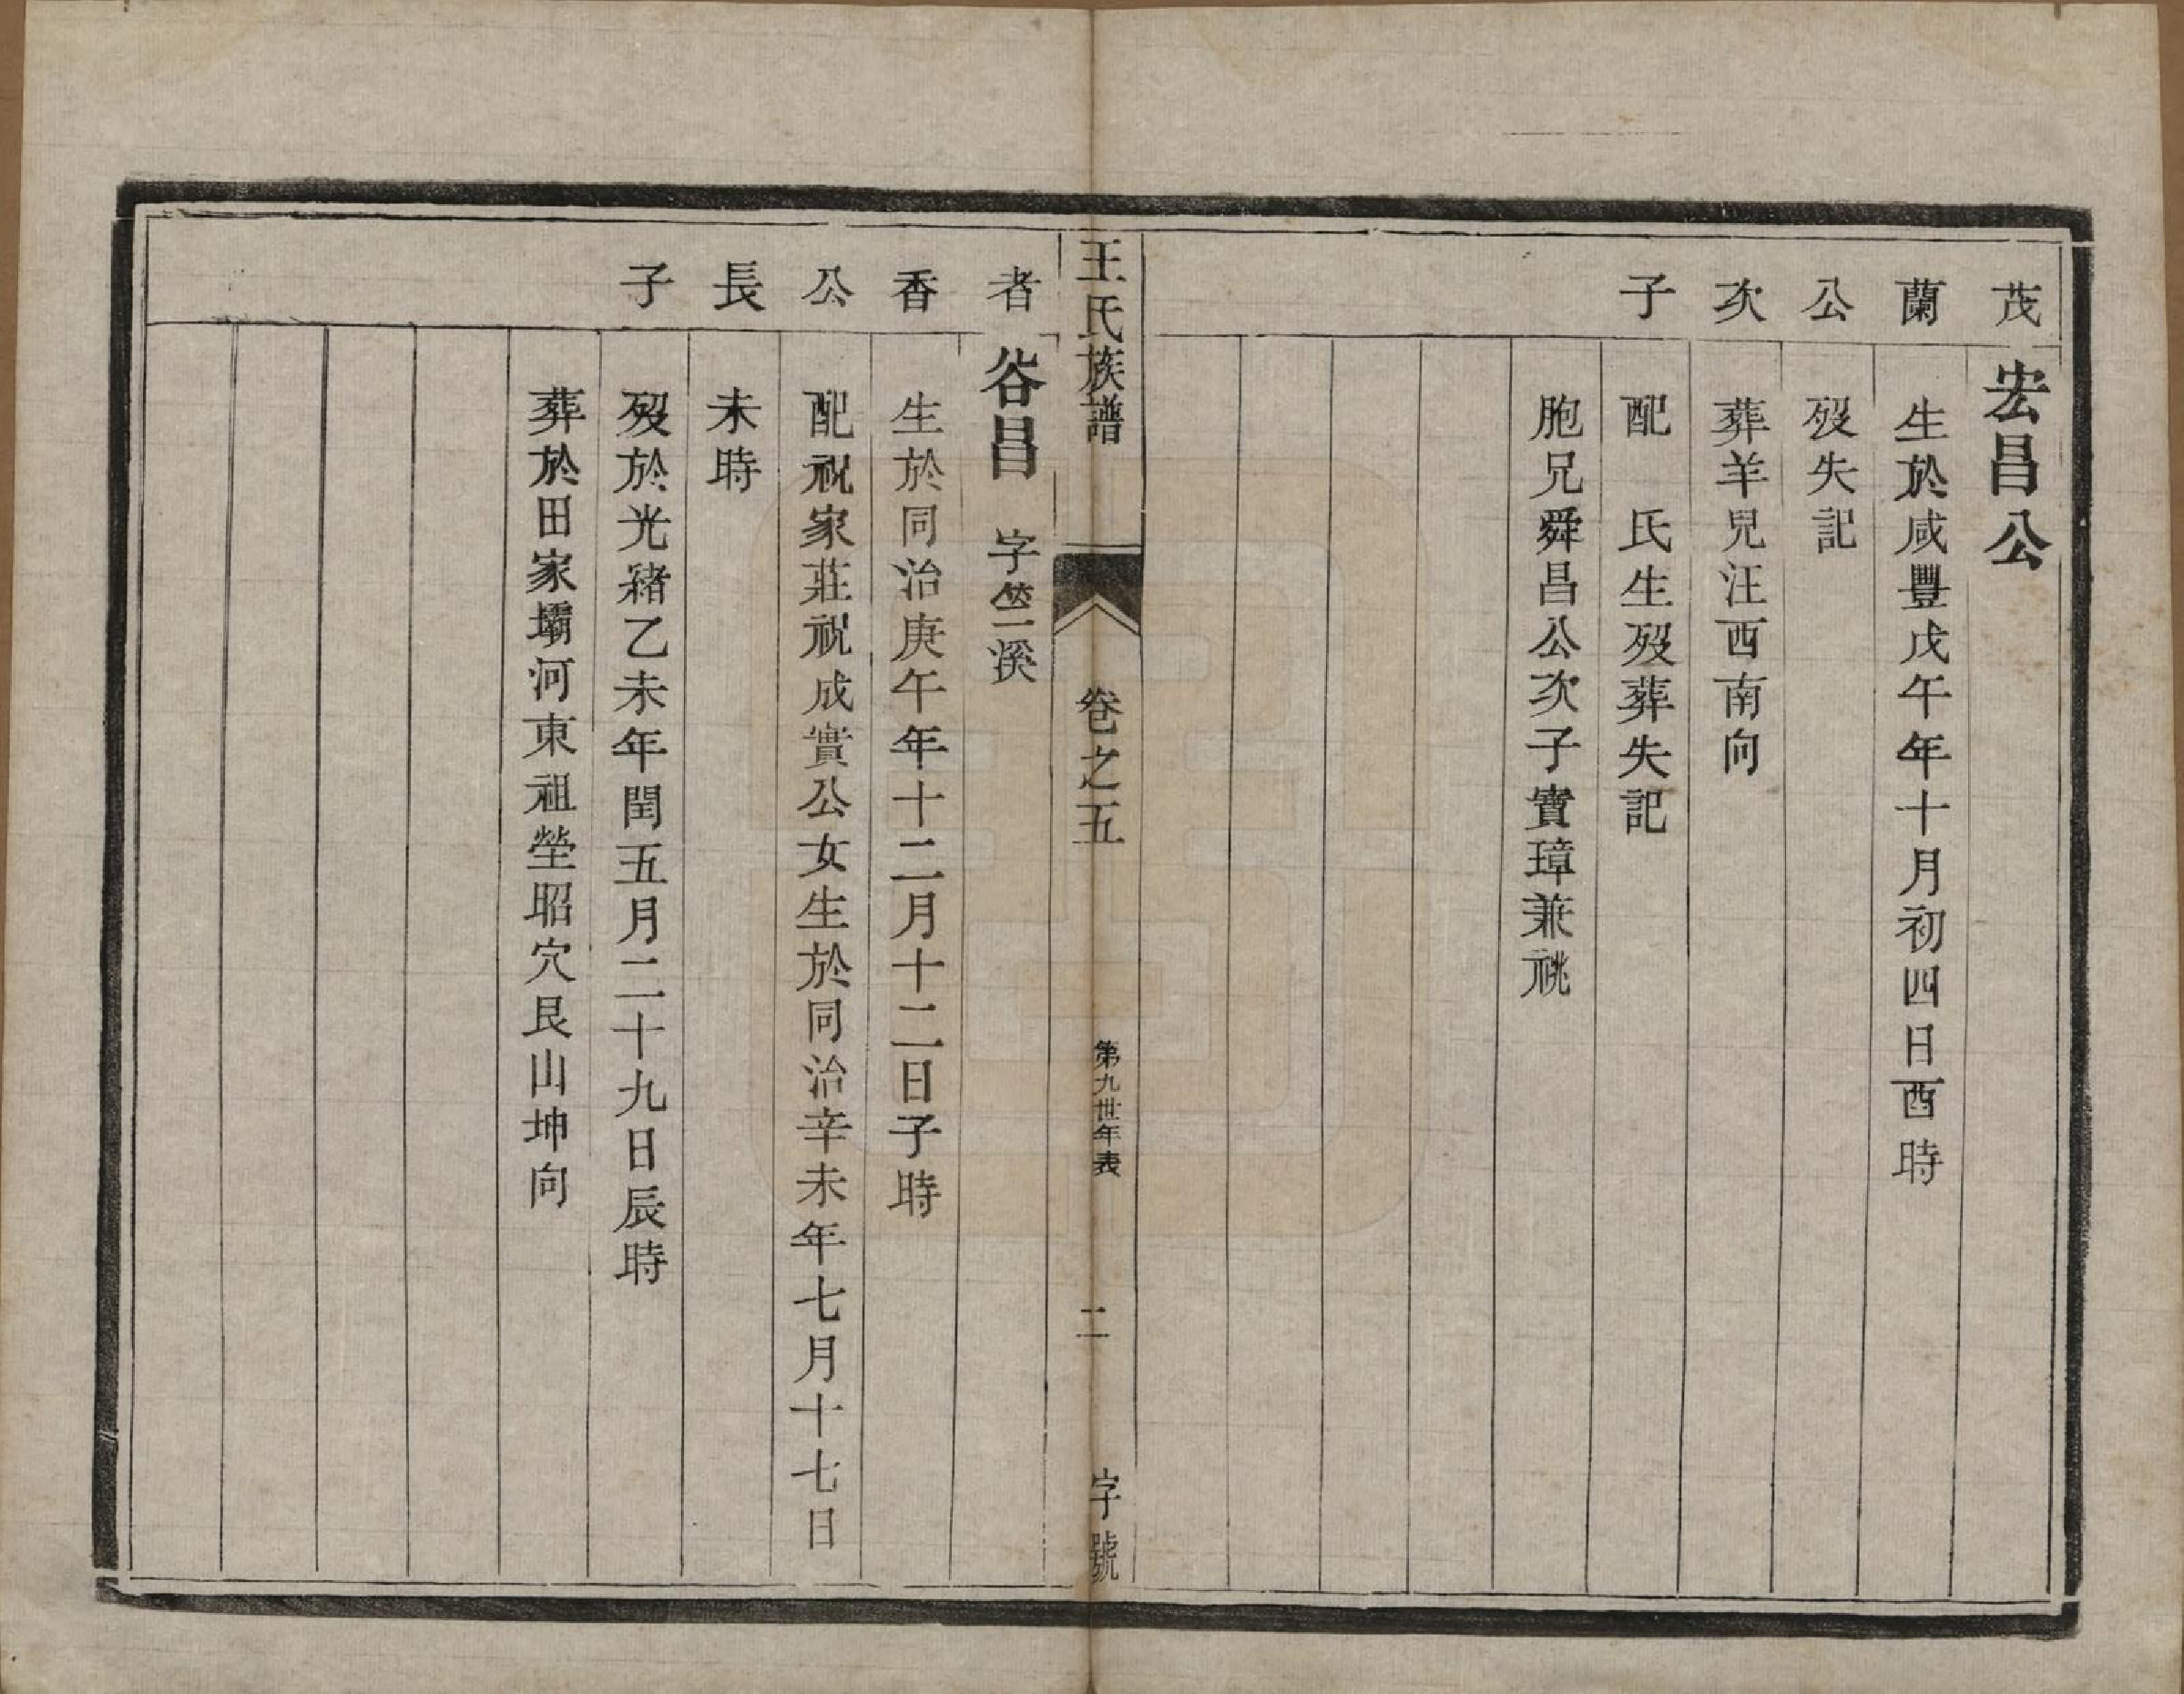 茂蘭公次子
宏昌公
生於咸豐戊午年十月初四日酉時
歿失記
葬羊兒汪西南向
配　氏生歿葬失記
胞兄舜昌公次子寶璋兼祧
王氏族譜　卷之五　第九世年表　二　字號
耆香公長子
谷昌　字竺溪
生於同治庚午年十二月十二日子時
配祝家莊祝成實公女生於同治辛未年七月十七日
未時
歿於光緒乙未年閏五月二十九日辰時
葬於田家壩河東祖塋昭穴艮山坤向